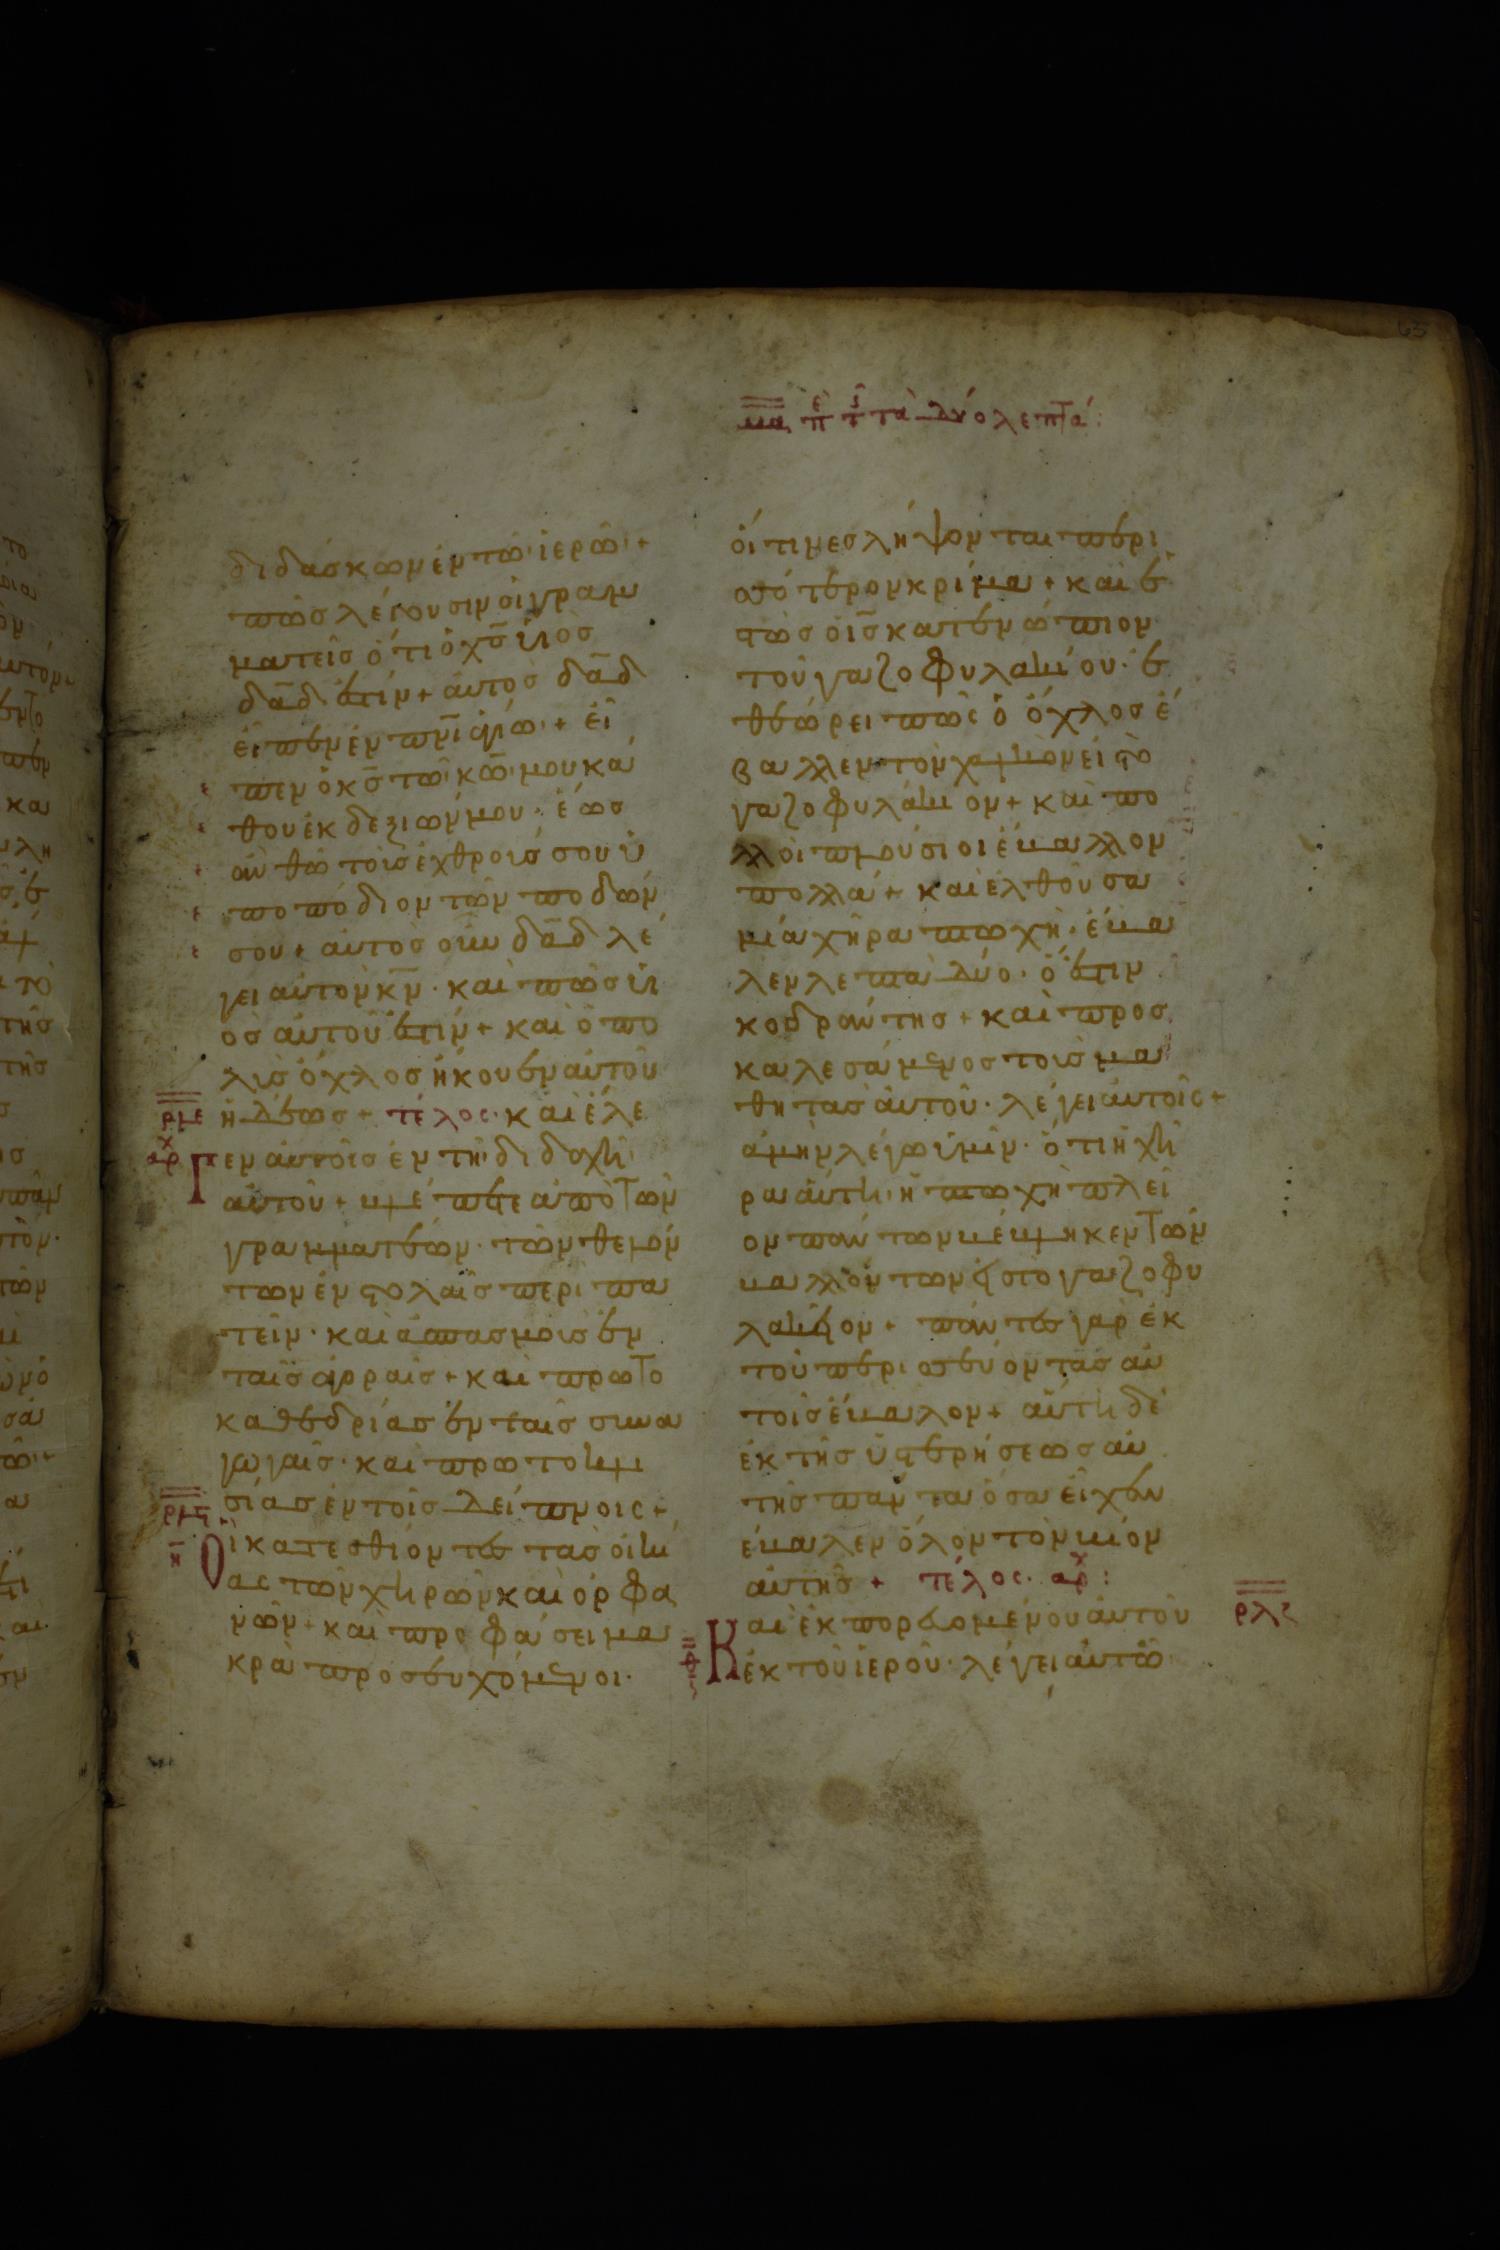 μα πε τι τα δύο λεπτά:
διδάσκων ἐν τῶ ἱερῶ +
πῶς λέγουσιν οἱ γραμ
ματεῖς ὅτι ὁ χς υἱος
δαδ ἐστίν + αὐτὸς δαδ
εἶπεν ἐν πνι ἁγίω + εἶ
πεν ὁ κς τῶ κω μου κά
θου ἐκ δεξιῶν μου · ἕως
ἂν θῶ τοὺς ἐχθρούς σου ὑ
ποπόδιον τῶν ποδῶν
σου + αὐτὸς οὖν δαδ λέ
γει αὐτὸν κν · καὶ πῶς υἱ
ος αὐτοῦ ἐστίν + καὶ ὁ πο
λὺς ὄχλος ἤκουεν αὐτοῦ
ρμε ἡδέως + τέλος · καὶ ἔλε
αρχ Γεν αὐτοῖς ἐν τῆ διδαχῆ
αὐτοῦ + βλέπετε ἀπὸ τῶν
γραμματέων · τῶν θελόν
των ἐν στολαῖς περιπα
τεῖν · καὶ ἀσπασμοὺς ἐν
ταῖς ἀγοραῖς + καὶ πρωτο
καθεδρίας ἐν ταῖς συνα
γωγαῖς · καὶ πρωτοκλι
ρμς σίας ἐν τοῖς δείπνοις +
η Οἱ κατεσθίοντες τὰς οἰκί
ας τῶν χηρῶν καὶ ὀρφα
νῶν + καὶ προφάσει μα
κρὰ προσευχόμενοι ·
οὗτινες λήψονται περι
σσότερον κρίμα + καὶ ἑ
στὼς ὁ ις κατενώπιον
τοῦ γαζοφυλακίου · ἐ
θεώρει πῶς ὁ ὄχλος ἔ
βαλλεν τὸν χαλκὸν εἰς τὸ
γαζοφυλάκιον + καὶ πο
λλοὶ πλούσιοι ἔβαλλον
πολλά + καὶ ἐλθοῦσα
μία χήρα πτωχὴ · ἔβα
λεν λεπτὰ δύο · ὅ ἐστιν
κοδράντης + καὶ προσ
καλεσάμενος τοὺς μα
θητὰς αὐτοῦ · λέγει αὐτοῖς +
ἀμὴν λέγω ὑμῖν · ὅτι ἡ χή
ρα αὕτη · ἡ πτωχὴ πλεῖ
ον πάντων βέβληκεν τῶν
βαλλόντων εἰς τὸ γαζοφυ
λάκιον + πάντες γὰρ ἐκ
τοῦ περισσεύοντας αὐ
τοῖς ἔβαλον + αὕτη δὲ
ἐκ τῆς ὑστερήσεως αὐ
τῆς πάντα ὅσα εἶχεν
ἔβαλεν ὅλον τὸν βίον
αὐτῆς + τέλος · αρχ :
Καὶ ἐκπορευομένου αὐτοῦ ρλζ
ἐκ τοῦ ἱεροῦ · λέγει αὐτῶ